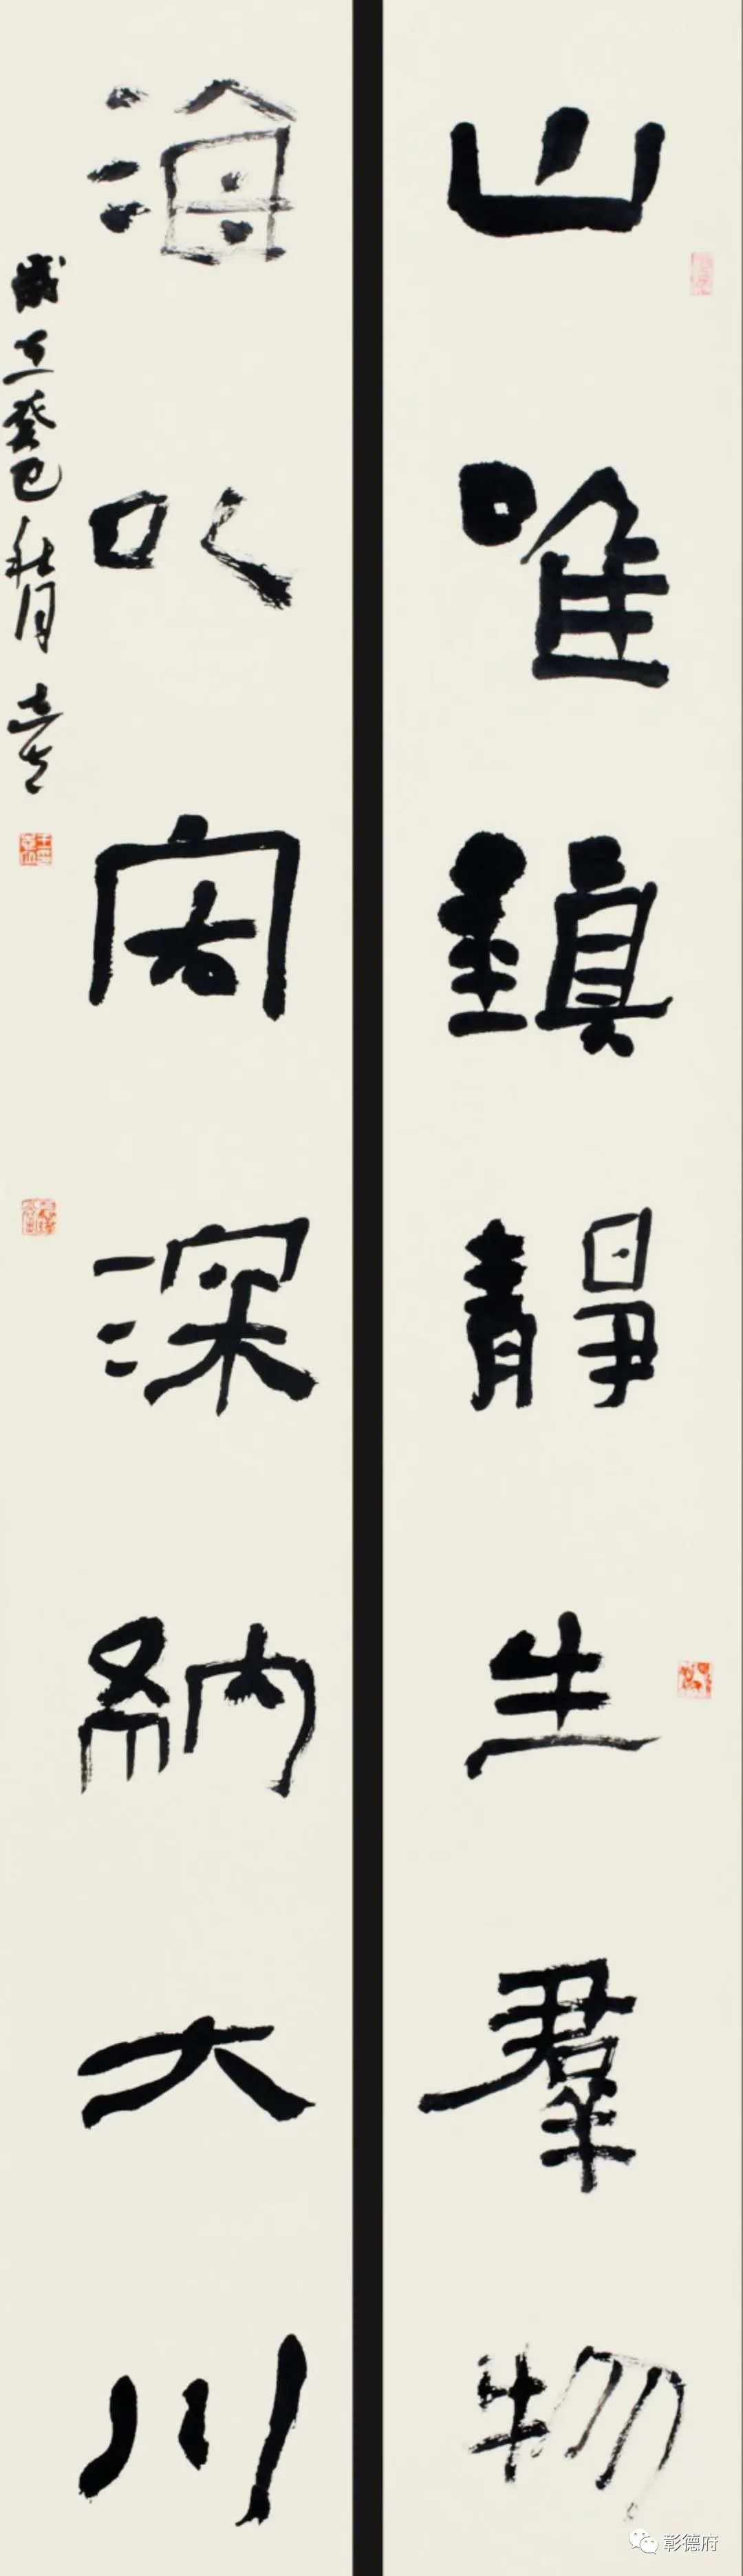 山唯鎮靜生羣物
海以宏深納大川
歲在癸巳秋月
彰德府